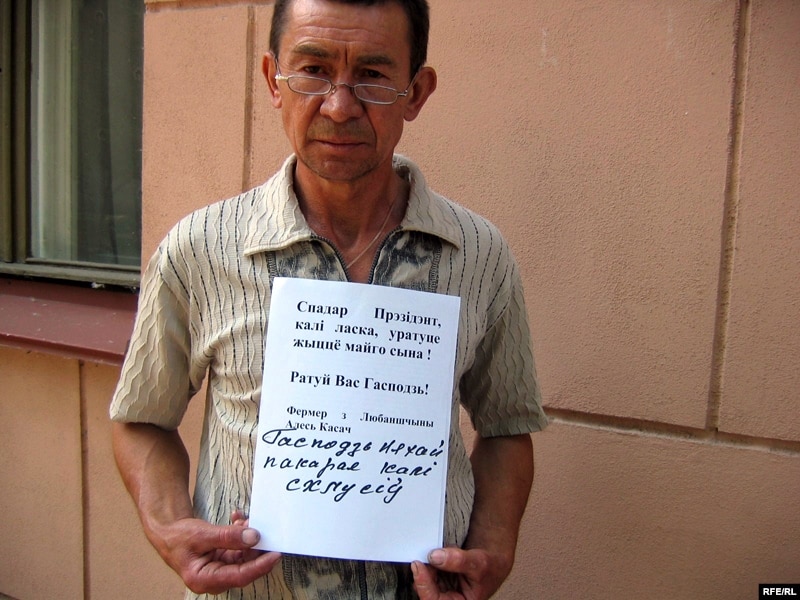 Спадар Прэзідэнт,
калі ласка, уратуце
жыццё майго сына !
Ратуй Вас Гасподзь!
Фермер з Любаншчыны
Алесь Касач
Гасподзь няхай
пакарае калі
схлусіў
RFE/RL